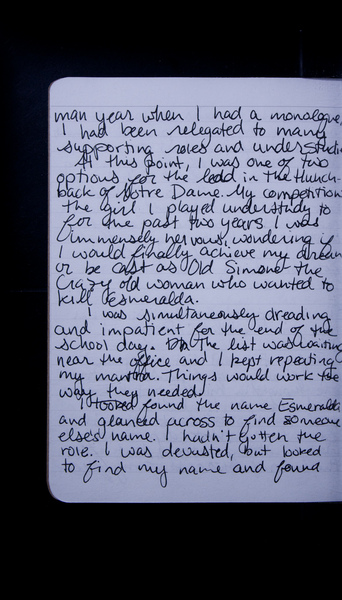 man year when I had a monologue,
I had been relegated to many
supporting roles and understudie
At this point, I was one of two
options for the lead in the Hunch-
back of Notre Dame. My competition
the girl I played understudy to
for the past two years. I was
immensely nervous, wondering if
I would finally achieve my dream
or be cast as Old Simone the
crazy old woman who wanted to
kill Esmeralda.
I was simultaneously dreading
and impatient for the end of the
school day. The list was waiting
near the office and I kept repeating
my mantra. Things would work the
way they needed.
I looked found the name Esmeralda
and glanced across to find someone
else's name. I hadn't gotten the
role. I was devasted, but looked
to find my name and found